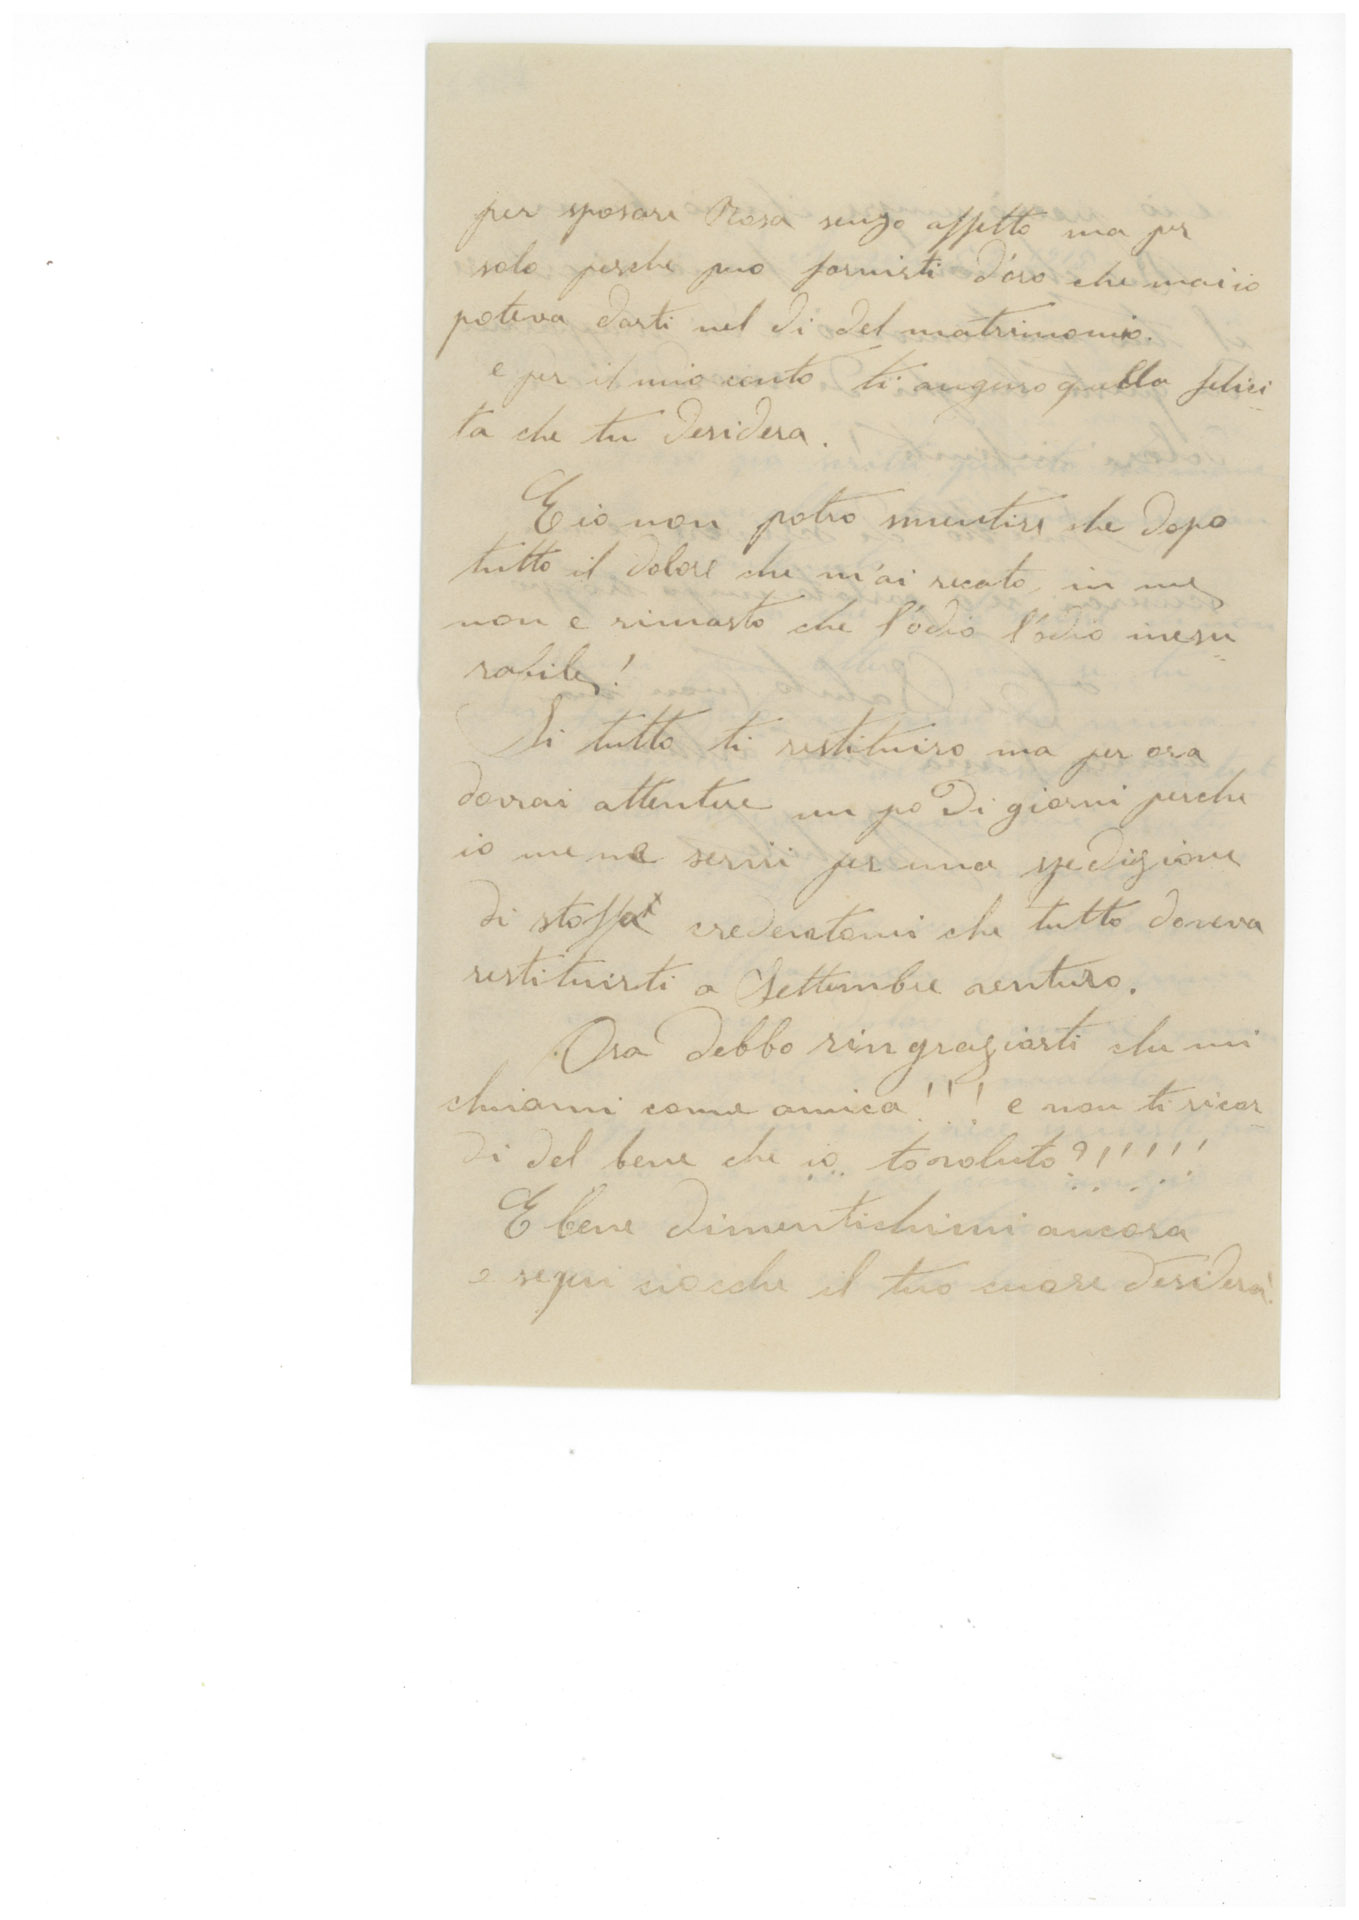 per sposare Rosa senza affetto ma per
solo perche puo fornirti d'oro che mai io
poteva darti nel di del matrimonio.
e per il mio conto ti auguro quella felici
ta che tu desidera.
E io non potro smentire che dopo
tutto il dolore che m'ai recato in me
non e rimasto che l'odio l'odio mesu
rabile!
Si tutto ti restituiro ma per ora
dovrai attentere un po di giorni perche
io me ne servii per una spedizione
di stoffa credentomi che tutto doveva
restituirti a Settembre venturo.
Ora debbo ringraziarti che mi
chiami come amica!!! e non ti ricor
di del bene che io to voluto?!!!!!
E bene dimentichimi ancora
e segui ciocche il tuo cuore desidera!